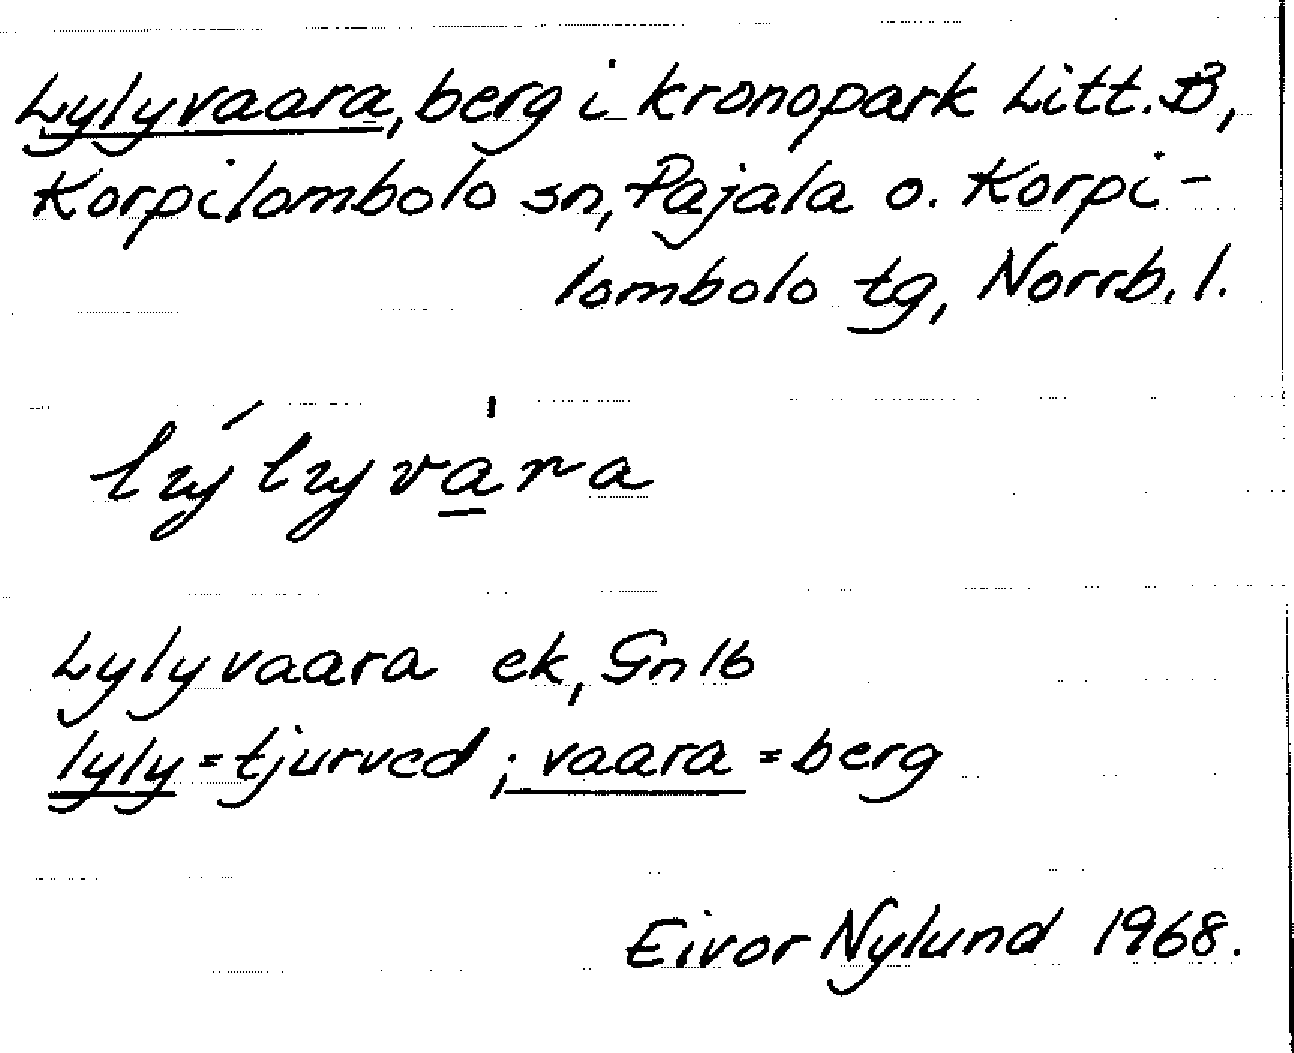 Lylyvaara, berg i kronopark Litt. B,
Korpilombolo sn, Pajala o. Korpi-
lombolo tg, Norrb. l.
lýlyvàra
Lylyvaara ek, Gn 16
lyly = tjurved ; vaara = berg
Eivor Nylund 1968.